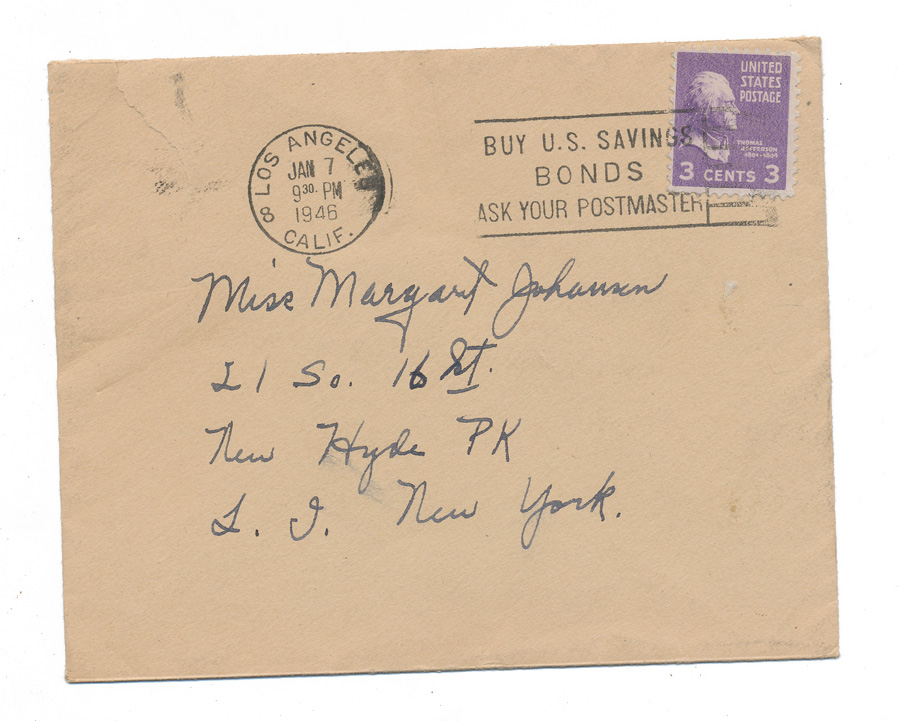 UNITED
STATES
POSTAGE
THOMAS
JEFFERSON
1801-1809
3 CENTS 3
LOS ANGELES
JAN 7
9 30 PM
1946
8
CALIF.
BUY U.S. SAVINGS
BONDS
ASK YOUR POSTMASTER
Miss Margart Johansen
21 So. 16 St.
New Hyde PK
L. I. New York.